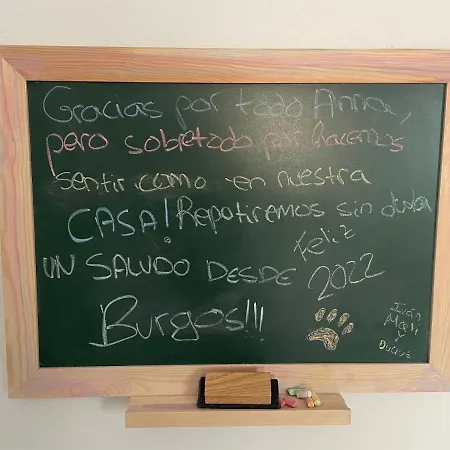 Gracias por todo Anna,
pero sobretodo por hacernos
sentir como en nuestra
CASA! Repetiremos sin duda
UN SALUDO DESDE
Feliz
2022
Burgos!!!
Iván
y
Duque